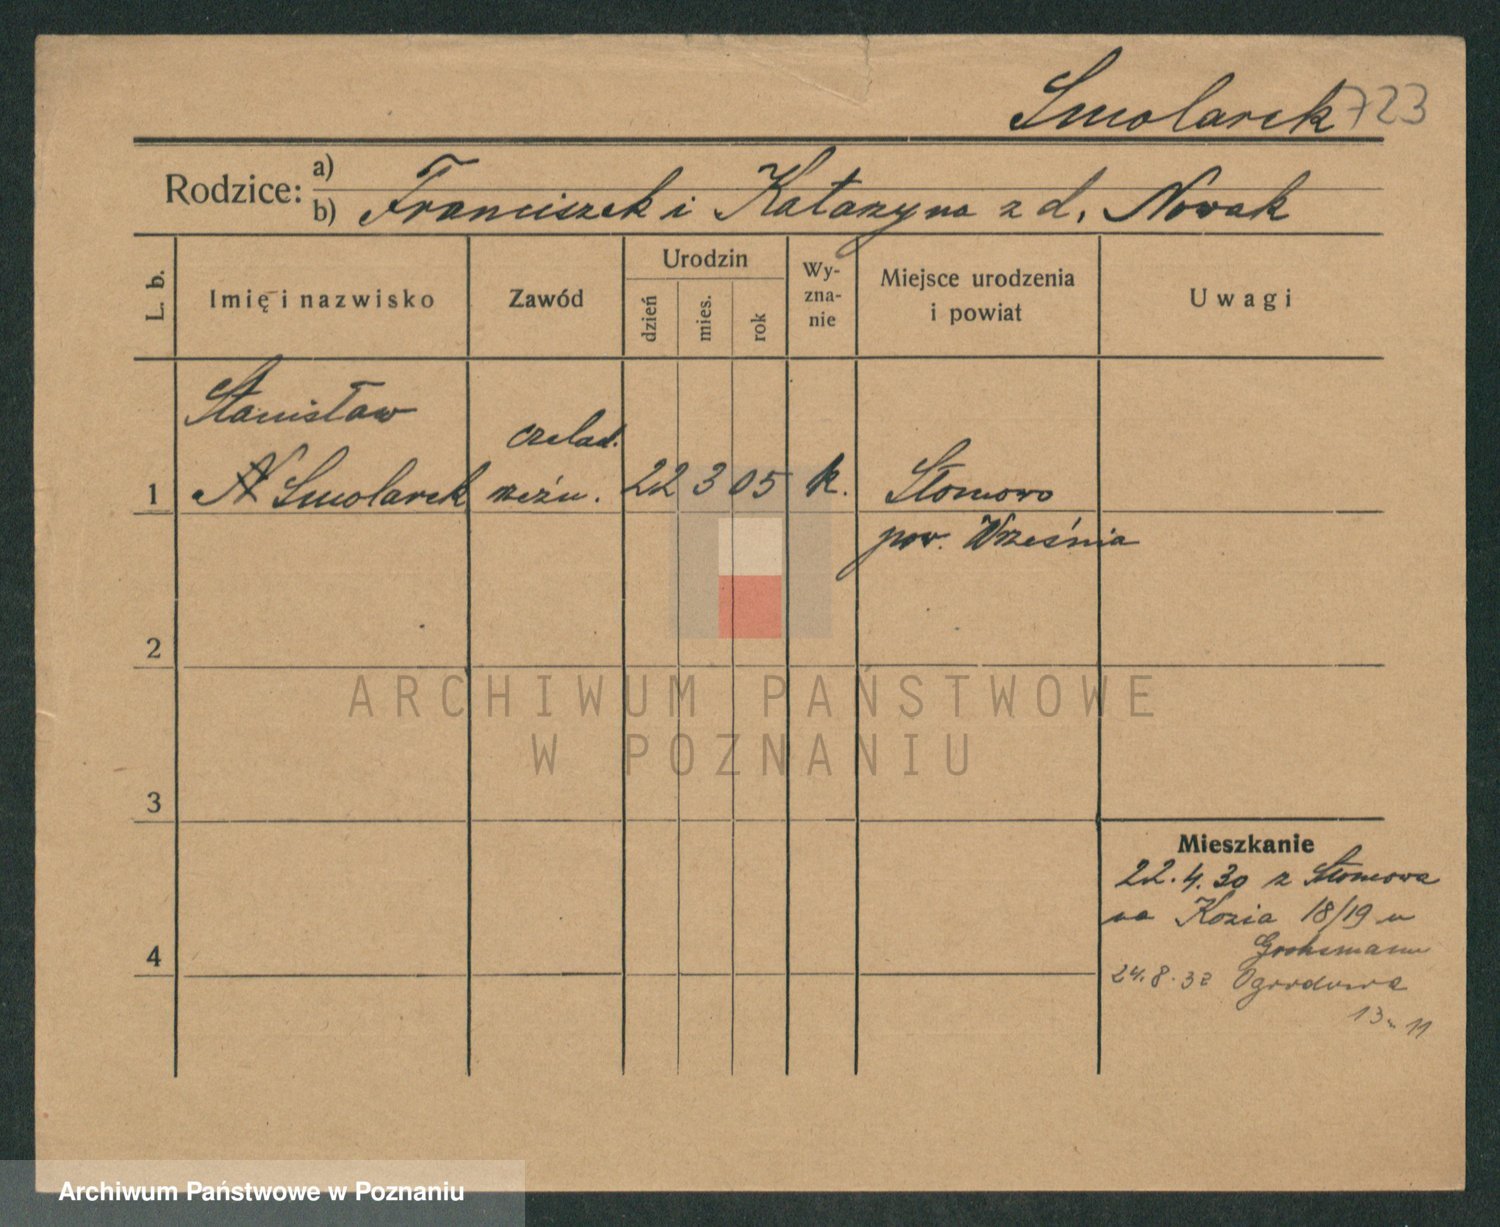 Smolarek 723
Rodzice: a)
b) Franciszek i Katarzyna z d. Nowak
L. b.
Imię i nazwisko
Zawód
Urodzin
dzień
mies.
rok
Wy-
zna-
nie
Miejsce urodzenia
i powiat
Uwagi
Stanisław
czelad.
1 N Smolarek rzeźn. 22 3 05 k. Słomowo
pow. Września
2
ARCHIWUM PAŃSTWOWE
W POZNANIU
3
Mieszkanie
22.4.30 z Słomowa
na Kozia 18/19 u
4
24.8.32 Ogrodowa
13 11
Archiwum Państwowe w Poznaniu